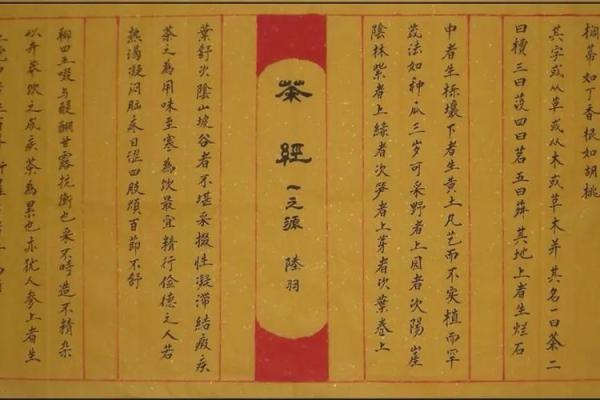 櫚蒂如丁香根如胡桃
其字或从草或从木或草木并其名一曰茶二
曰檟三曰蔎四曰茗五曰荈其地上者生烂石
中者生栎壤下者生黄土凡艺而不实植而罕
茂法如种瓜三岁可采野者上园者次陽崖
陰林紫者上緑者次笋者上芽者次葉卷上
茶經
一之源
陸羽
葉舒次陰山坡谷者不堪采掇性凝滞結瘕疾
茶之為用味至寒為饮最宜精行儉德之人若
熱渴凝闷脑疼目澀四肢煩百節不舒
聊四五啜与醍醐甘露抗衡也采不時造不精杂
以卉莽饮之成疾茶為累也亦犹人參上者生